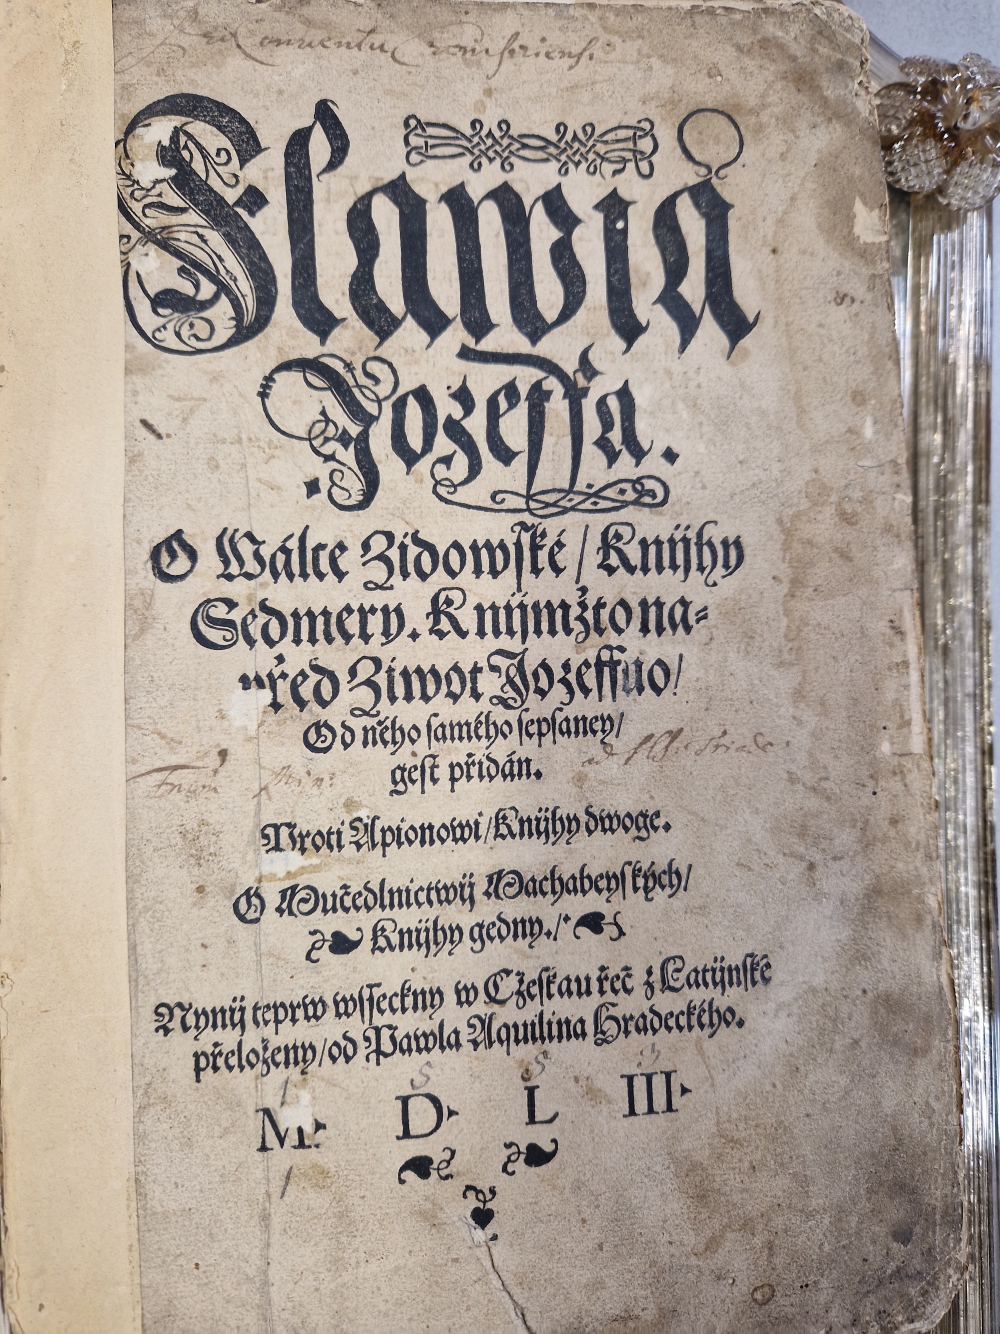 Flawia
Jozeffa.
O Wálce Židowſké / Knijhy
Sedmery. Knijmžto na⸗
před Žiwot Jozeffuo /
Od něho ſamého ſepſaney /
geſt přidán.
Proti Apionowi / Knijhy dwoge.
O Mučedlnictwij Machabeyſkých /
Knijhy gedny. /
Nynij teprw wſſeckny w Cžeſkau řeč z Latijnſké
přeloženy / od Pawla Aquilina Hradeckého.
1 5 5 3
M. D. L III.